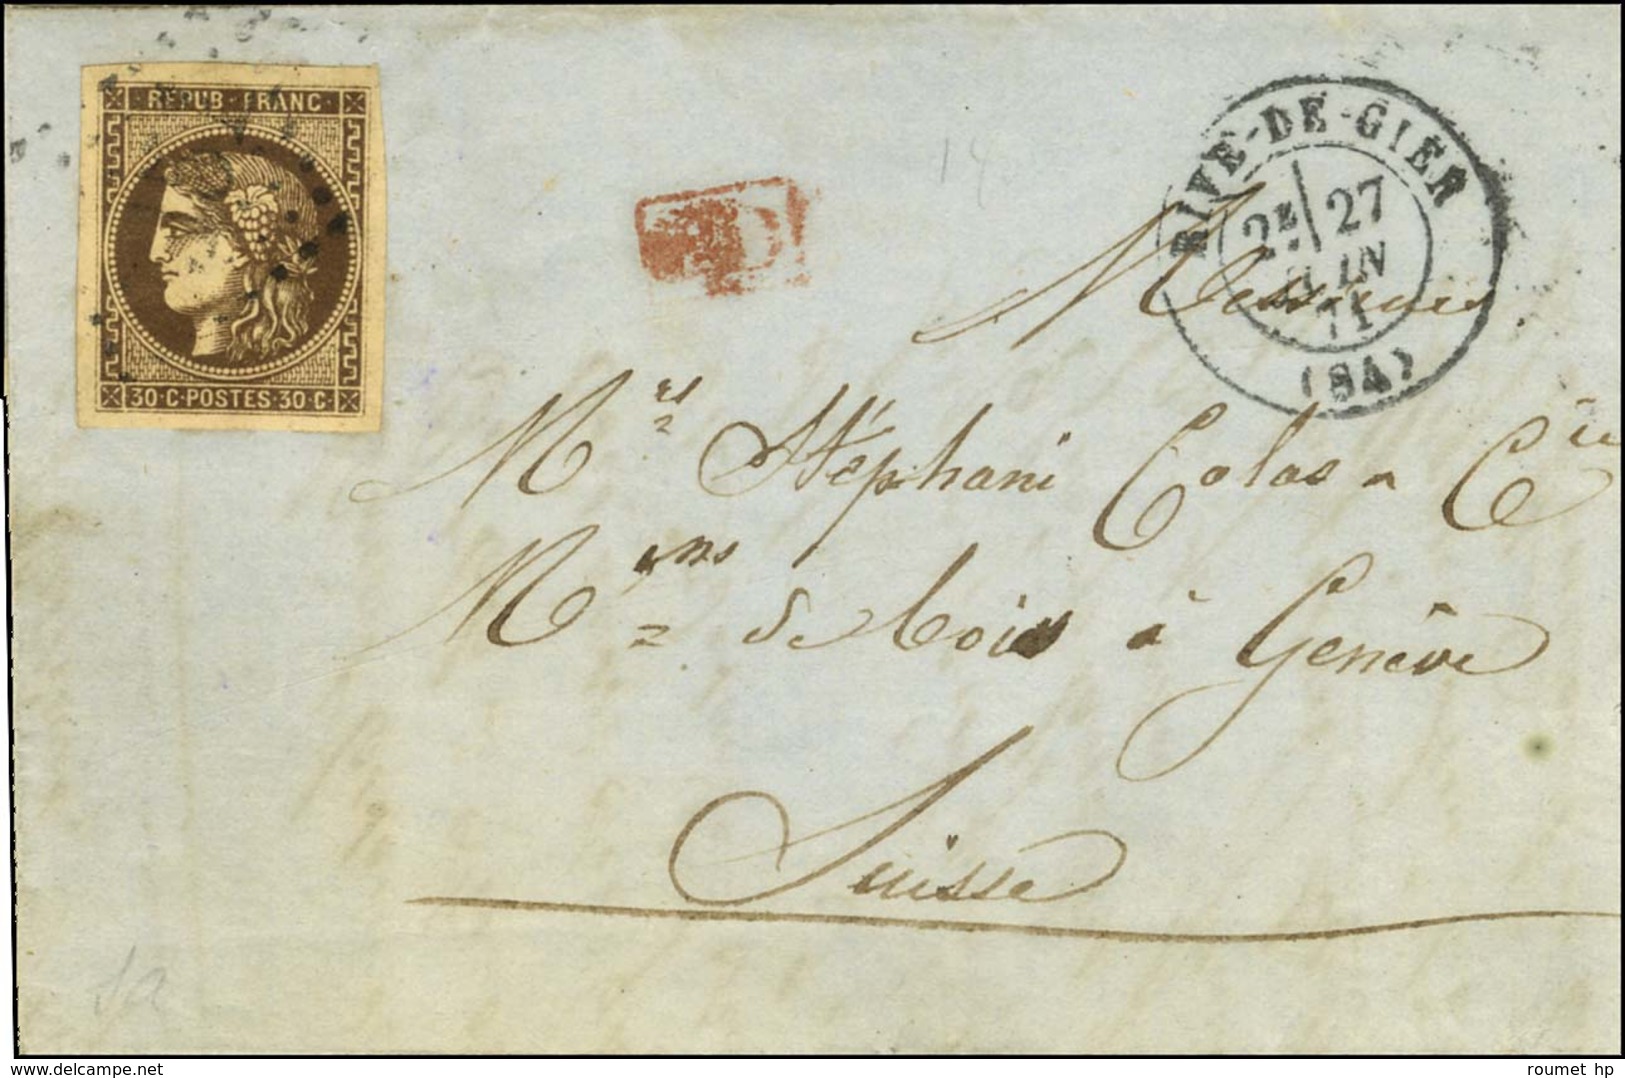 REPUB·FRANC·
30·C·POSTES·30·C·
PD
14
RIVE-DE-GIER
2E 27
JUIN
71
(84)
Messieurs
Mrs Stéphani Colas & Cie
Mons de bois à Genève
Suisse
roumet hp